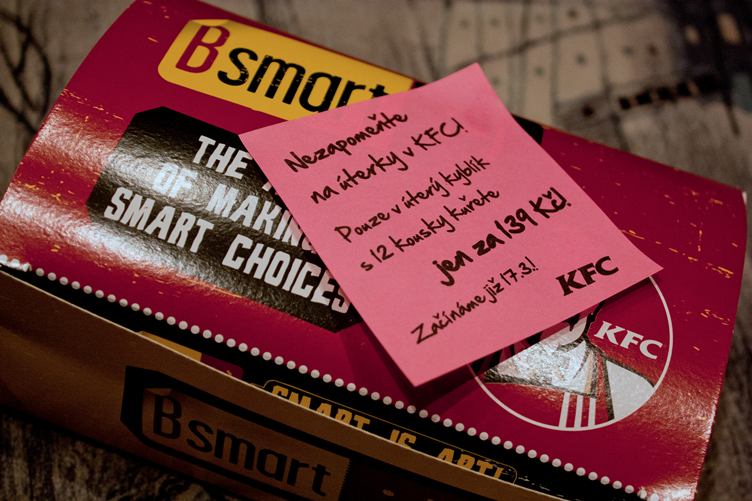 Bsmart
THE
OF MAKING
SMART CHOICES
Nezapomeňte
na úterky v KFC!
Pouze v úterý kyblík
s 12 kousky kuřete
jen za 139 Kč!
Začínáme již 17.3.!
KFC
KFC
SMART IS ART!
Bsmart